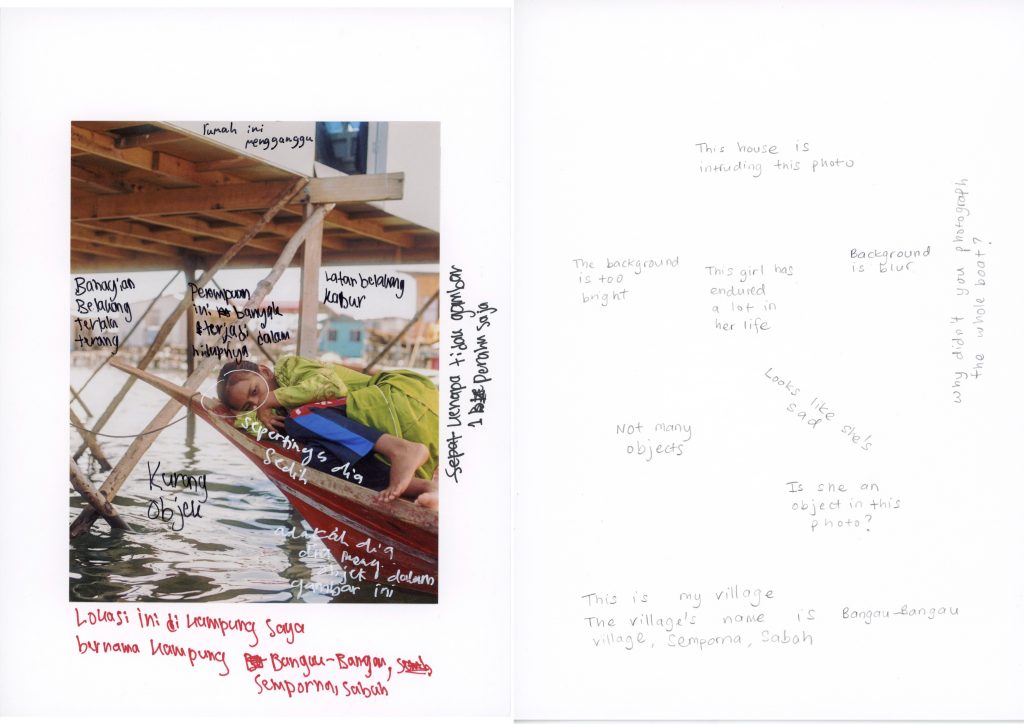 rumah ini
mengganggu
Bahagian
Belakang
terlalu
terang
Perempuan
ini banyak
terjadi dalam
hidupnya
Latar belakang
kabur
kenapa tidak gambar
1 Perahu saja
sepertinya dia
sedih
Kurang
objek
adakah dia
objek dalam
gambar ini
Lokasi ini di kampung saya
bernama kampung Bangau-Bangau,
Semporna, Sabah
This house is
intruding this photo
The background
is too
bright
This girl has
endured
a lot in
her life
Background
is blur
Why didn't you photograph
the whole boat?
Looks like she's
sad
Not many
objects
Is she an
object in this
photo?
This is my village
The village's name is Bangau-Bangau
village, Semporna, Sabah